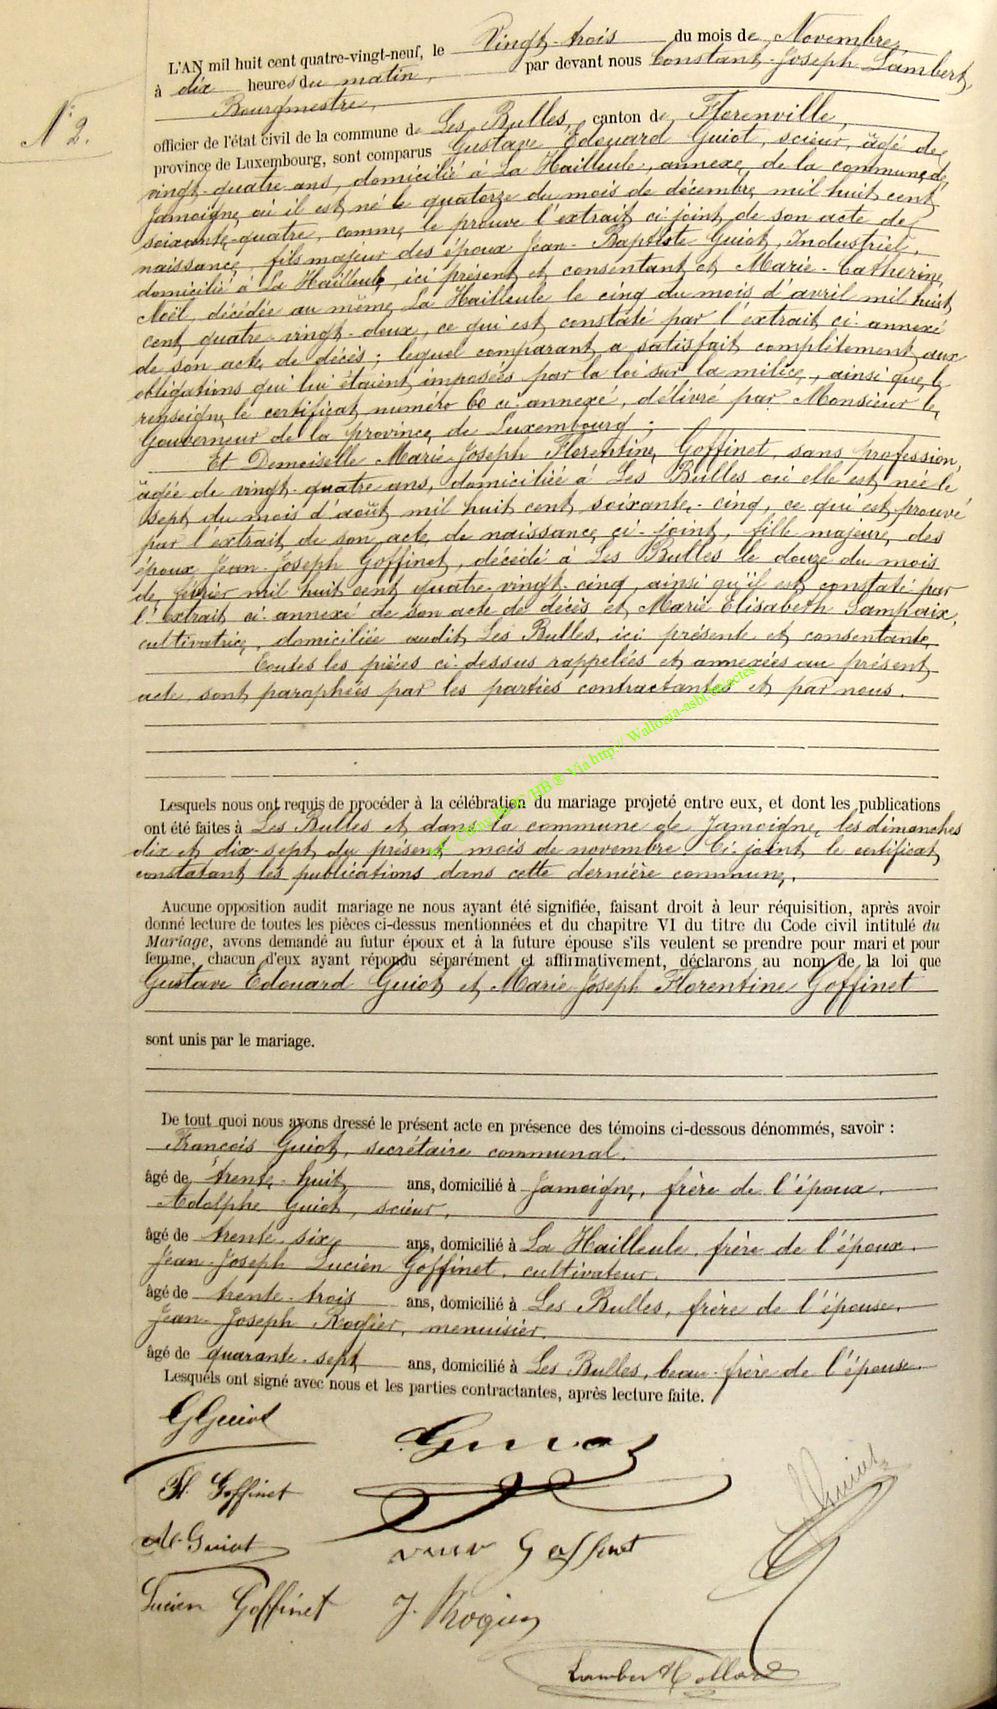 L'AN mil huit cent quatre-vingt-neuf, le Vingt-trois du mois de Novembre,
à dix heures du matin, par devant nous Constant-Joseph Lambert,
Bourgmestre,
N° 2.
officier de l'état civil de la commune de Les Bulles, canton de Florenville,
province de Luxembourg, sont comparus Gustave Edouard Guiot, scieur, âgé de
vingt-quatre ans, domicilié à La Hailleule, annexe de la commune de
Jamoigne où il est né le quatorze du mois de décembre mil huit cent
soixante-quatre, comme le prouve l'extrait ci-joint de son acte de
naissance, fils majeur des époux Jean-Baptiste Guiot, Industriel,
domicilié à La Hailleule, ici présent et consentant et Marie-Catherine
Noël, décédée au même La Hailleule le cinq du mois d'avril mil huit
cent quatre-vingt-deux, ce qui est constaté par l'extrait ci-annexé
de son acte de décès; lequel comparant a satisfait complètement aux
obligations qui lui étaient imposées par la loi sur la milice, ainsi que le
renseigne le certificat numéro 60 ci-annexé, délivré par Monsieur le
Gouverneur de la province de Luxembourg;
Et Demoiselle Marie-Joseph Florentine Goffinet, sans profession,
âgée de vingt-quatre ans, domiciliée à Les Bulles où elle est née le
sept du mois d'août mil huit cent soixante-cinq, ce qui est prouvé
par l'extrait de son acte de naissance ci-joint, fille majeure des
époux Jean-Joseph Goffinet, décédé à Les Bulles le douze du mois
de février mil huit cent quatre-vingt-cinq, ainsi qu'il est constaté par
l'extrait ci-annexé de son acte de décès et Marie Elisabeth Lampaix,
cultivatrice, domiciliée audit Les Bulles, ici présente et consentante.
Toutes les pièces ci-dessus rappelées et annexées au présent
acte sont paraphées par les parties contractantes et par nous.
Via http:// Wallonia-asbl
Lesquels nous ont requis de procéder à la célébration du mariage projeté entre eux, et dont les publications
ont été faites à Les Bulles et dans la commune de Jamoigne, les dimanches
dix et dix-sept du présent mois de novembre. Ci-joint le certificat
constatant les publications dans cette dernière commune.
Aucune opposition audit mariage ne nous ayant été signifiée, faisant droit à leur réquisition, après avoir
donné lecture de toutes les pièces ci-dessus mentionnées et du chapitre VI du titre du Code civil intitulé du
Mariage, avons demandé au futur époux et à la future épouse s'ils veulent se prendre pour mari et pour
femme, chacun d'eux ayant répondu séparément et affirmativement, déclarons au nom de la loi que
Gustave Edouard Guiot et Marie-Joseph Florentine Goffinet
sont unis par le mariage.
De tout quoi nous avons dressé le présent acte en présence des témoins ci-dessous dénommés, savoir :
François Guiot, secrétaire communal,
âgé de trente-huit ans, domicilié à Jamoigne, frère de l'époux.
Adolphe Guiot, scieur,
âgé de trente-six ans, domicilié à La Hailleule, frère de l'époux.
Jean-Joseph Lucien Goffinet, cultivateur,
âgé de trente-trois ans, domicilié à Les Bulles, frère de l'épouse.
Jean-Joseph Rogier, menuisier,
âgé de quarante-sept ans, domicilié à Les Bulles, beau-frère de l'épouse.
Lesquels ont signé avec nous et les parties contractantes, après lecture faite.
G Guiot
Guiot
Fl. Goffinet
Guiot
Ad. Guiot
Goffinet
Lucien Goffinet
J. Rogier